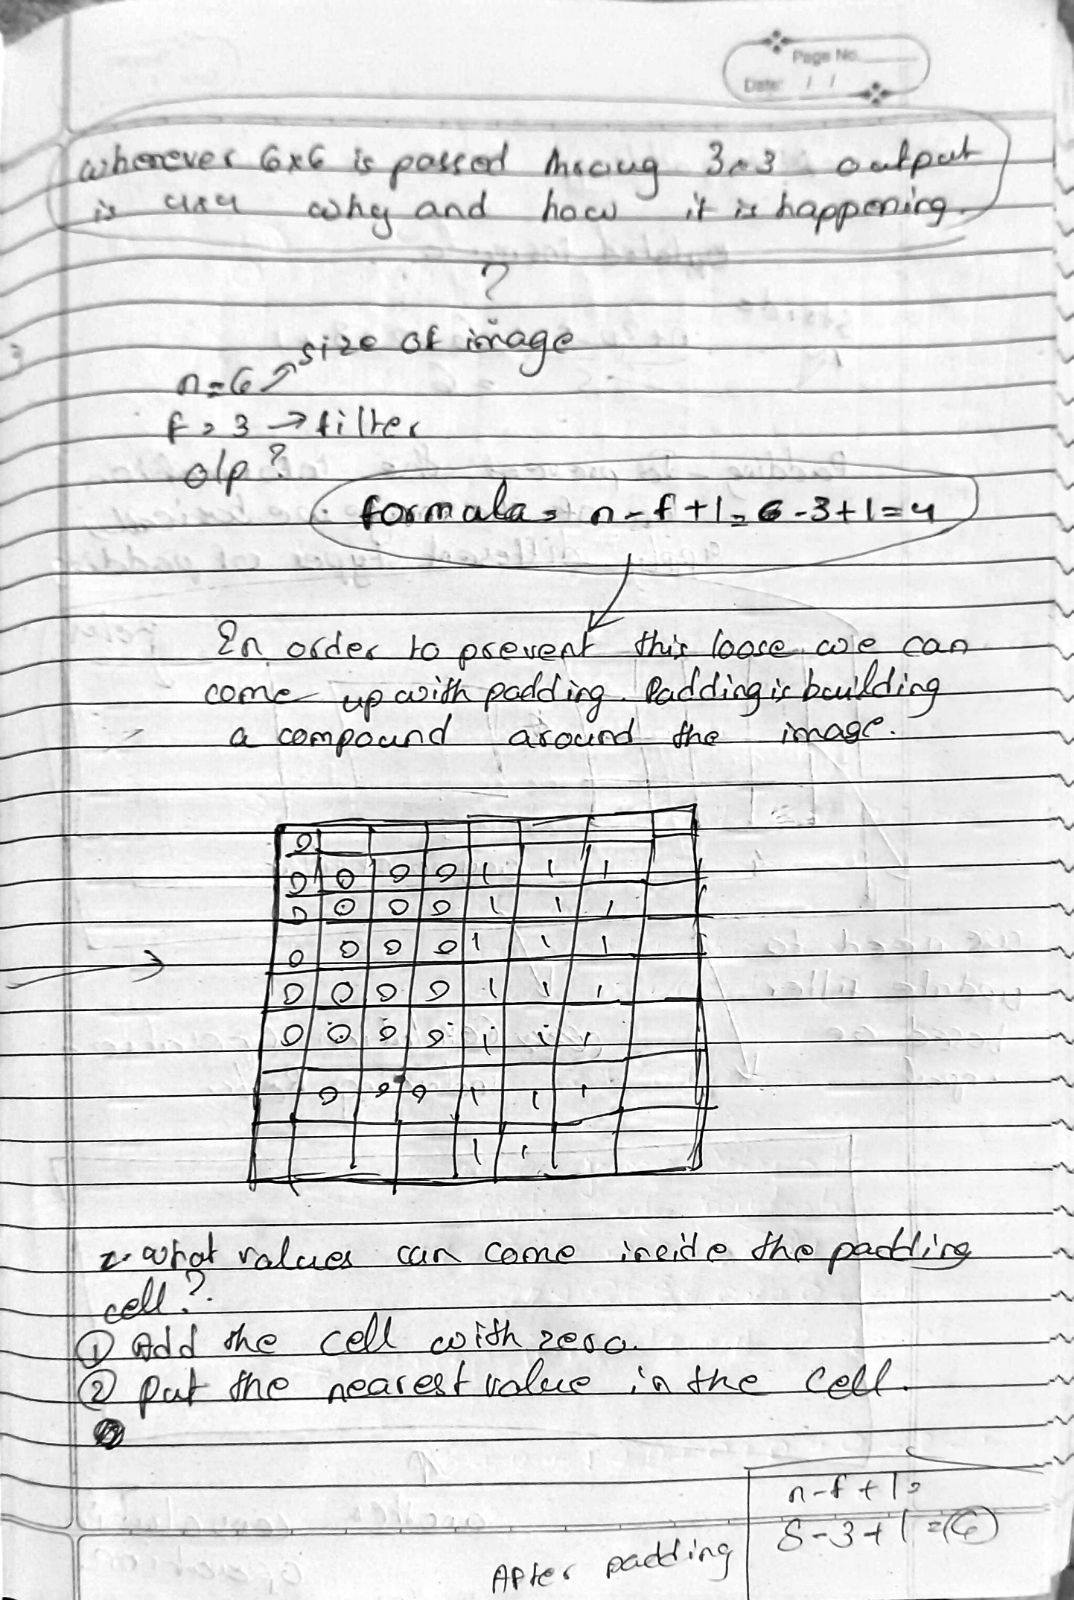 Page No.
Date / /
wherever 6x6 is passed throug 3x3 output
is 4x4 why and how it is happening.
?
n=6 → size of image
f = 3 → filter
o/p ?
formala = n - f + 1 = 6 - 3 + 1 = 4
In order to prevent this loose we can
come up with padding. Padding is building
a compound around the image.
0
0 0 0 0 1 1 1
0 0 0 0 1 1 1
0 0 0 0 1 1 1
0 0 0 0 1 1 1
0 0 0 0 1 1 1
0 0 0 1 1 1
1 1
2. what values can come inside the padding
cell?
① Add the cell with zero.
② put the nearest value in the cell.
n - f + 1 =
After padding 8 - 3 + 1 = 6